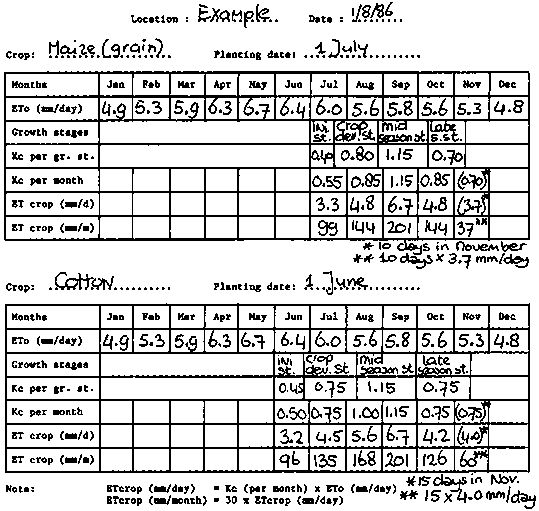 Location : Example Date : 1/8/86
Crop: Maize (grain) Planting date: 1 July
Months Jan Feb Mar Apr May Jun Jul Aug Sep Oct Nov Dec
ETo (mm/day) 4.9 5.3 5.9 6.3 6.7 6.4 6.0 5.6 5.8 5.6 5.3 4.8
Growth stages ini st. Crop dev. st. mid season st. late s. st.
Kc per gr. st. 0.40 0.80 1.15 0.70
Kc per month 0.55 0.85 1.15 0.85 (0.70)*
ET crop (mm/d) 3.3 4.8 6.7 4.8 (3.7)*
ET crop (mm/m) 99 144 201 144 37**
* 10 days in november
** 10 days x 3.7 mm/day
Crop: Cotton Planting date: 1 June
Months Jan Feb Mar Apr May Jun Jul Aug Sep Oct Nov Dec
ETo (mm/day) 4.9 5.3 5.9 6.3 6.7 6.4 6.0 5.6 5.8 5.6 5.3 4.8
Growth stages ini st. crop dev. st mid season st late season st.
Kc per gr. st. 0.45 0.75 1.15 0.75
Kc per month 0.50 0.75 1.00 1.15 0.75 (0.75)*
ET crop (mm/d) 3.2 4.5 5.6 6.7 4.2 (4.0)*
ET crop (mm/m) 96 135 168 201 126 60**
Note: ETcrop (mm/day) = Kc (per month) x ETo (mm/day) *15 days in Nov.
ETcrop (mm/month) = 30 x ETcrop (mm/day) ** 15 x 4.0 mm/day